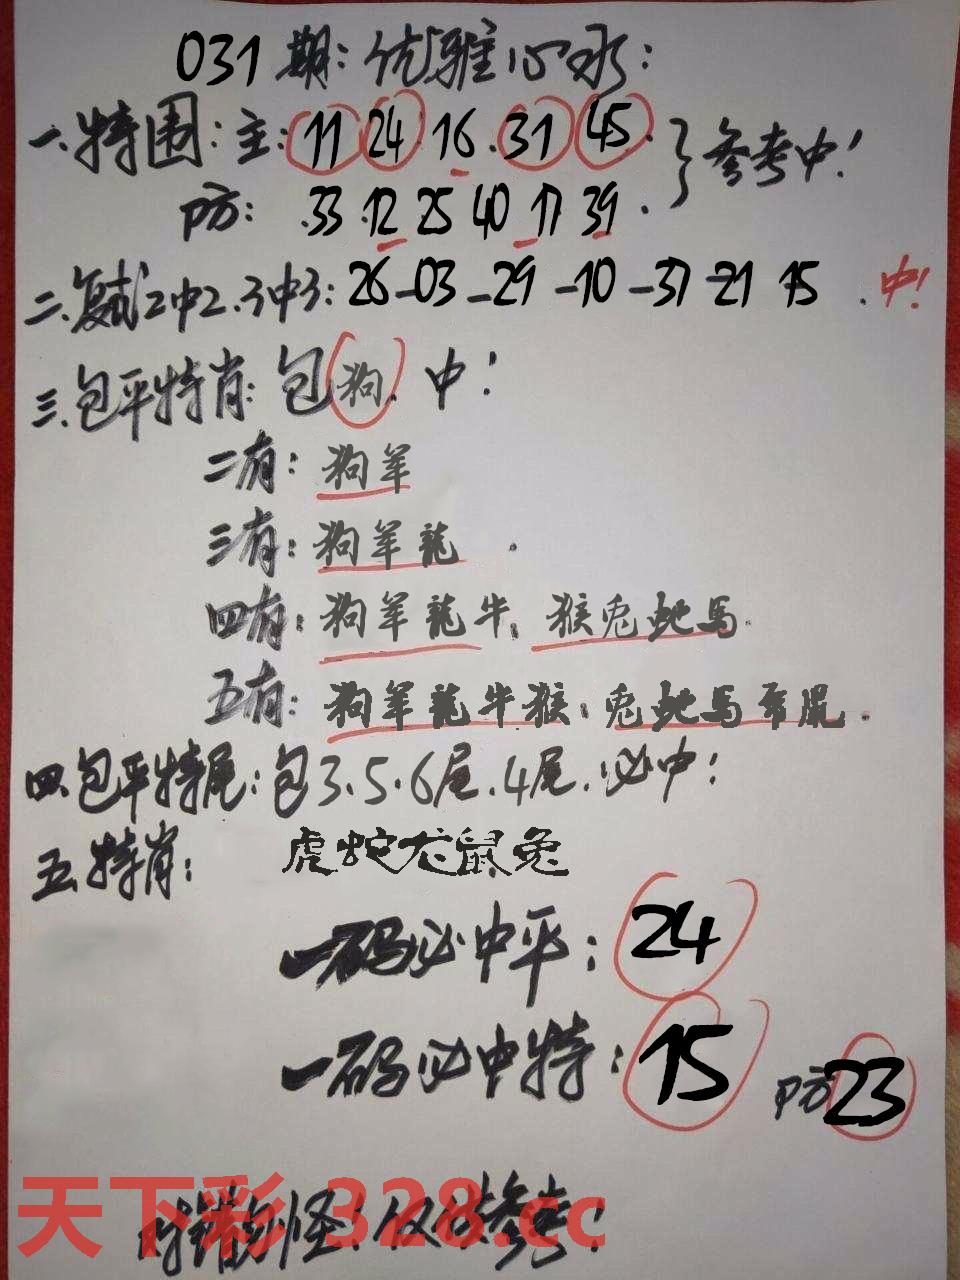 031期:优雅心水:
一.特围:主:11 24.16.31 45. 参考中!
防: .33.12 25 40 17 39.
二.复式2中2.3中3: 26-03-29-10-37-21 15.中!
三.包平特肖:包狗.中!
二有:狗羊
三有:狗羊龍.
四有:狗羊龍牛.猴兔蛇馬.
五有:狗羊龍牛猴.兔蛇馬鼠.
四.包平特尾:包3.5.6尾.4尾.必中!
五.特肖: 虎蛇龙鼠兔
一码必中平:24
一码必中特:15 防23
对错勿怪!仅供参考!
天下彩328.cc